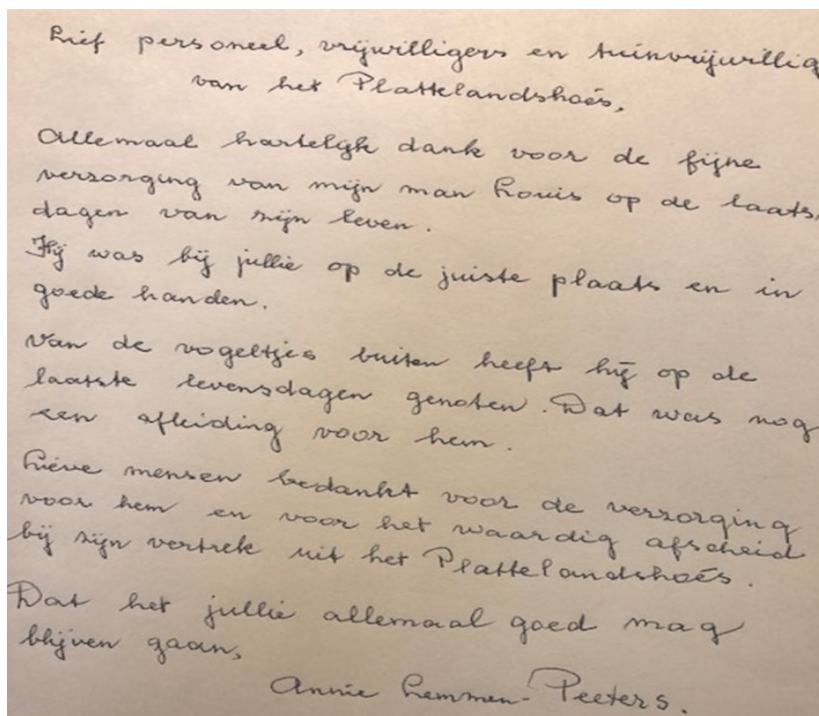 Lief personeel, vrijwilligers en tuinvrijwillig
van het Plattelandshoés,
Allemaal hartelijk dank voor de fijne
verzorging van mijn man Louis op de laats
dagen van zijn leven.
Hij was bij jullie op de juiste plaats en in
goede handen.
Van de vogeltjes buiten heeft hij op de
laatste levensdagen genoten. Dat was nog
een afleiding voor hem.
Lieve mensen bedankt voor de verzorging
voor hem en voor het waardig afscheid
bij zijn vertrek uit het Plattelandshoés.
Dat het jullie allemaal goed mag
blijven gaan,
Annie Lemmen-Peeters.